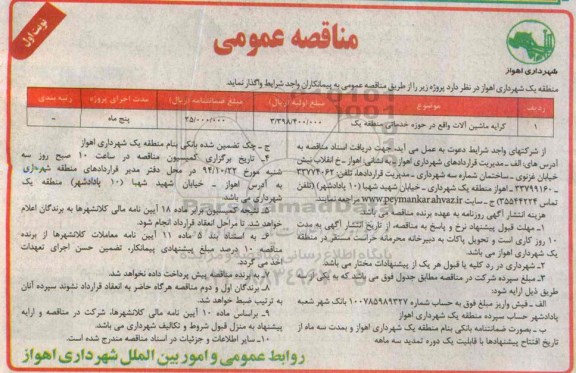 نوبت اول
مناقصه عمومی
شهرداری اهواز
منطقه یک شهرداری اهواز در نظر دارد پروژه زیر را از طریق مناقصه عمومی به پیمانکاران واجد شرایط واگذار نماید.
ردیف موضوع مبلغ اولیه (ریال) مبلغ ضمانتنامه (ریال) مدت اجرای پروژه رتبه بندی
۱ کرایه ماشین آلات واقع در حوزه خدماتی منطقه یک ۳/۳۹۸/۴۰۰/۰۰۰ ۲۵/۰۰۰/۰۰۰ پنج ماه -
از شرکتهای واجد شرایط دعوت به عمل می آید، جهت دریافت اسناد مناقصه به
آدرس های: الف - مدیریت قراردادهای شهرداری اهواز - به نشانی: اهواز - خ انقلاب نبش
خیابان غزنوی - ساختمان شماره سه شهرداری - مدیریت قراردادها، تلفن: ۳۳۷۷۴۰۶۲
۳۳۷۹۹۱۶۰ - اهواز منطقه یک شهرداری - خیابان شهید شهبا (۱۰ پادادشهر) (تلفن
تماس ۳۵۵۴۴۲۲۴) ج - سایت www.peymankarahvaz.ir مراجعه نمایند.
هزینه انتشار آگهی روزنامه به عهده برنده مناقصه می باشد.
۱- مهلت قبول پیشنهاد نرخ و پاسخ به مناقصه، از تاریخ انتشار آگهی به مدت
۱۰ روز کاری است و تحویل پاکات به دبیرخانه محرمانه حراست مستقر در منطقه
یک شهرداری اهواز می باشد.
۲- شهرداری در رد کلیه یا قبول هر یک از پیشنهادات مختار می باشد.
۳- مبلغ سپرده شرکت در مناقصه مطابق جدول فوق می باشد که به یکی از سه
طریق ذیل ارایه شود:
الف - فیش واریز مبلغ فوق به حساب شماره ۱۰۰۷۸۵۹۸۹۳۲۷ بانک شهر شعبه
پادادشهر حساب سپرده منطقه یک شهرداری اهواز
ب - بصورت ضمانتنامه بانکی بنام منطقه یک شهرداری اهواز و بمدت سه ماه از
تاریخ افتتاح پیشنهادها با قابلیت یک دوره تمدید سه ماهه
ج - چک تضمین شده بانکی بنام منطقه یک شهرداری اهواز
۴- تاریخ برگزاری کمیسیون مناقصه در ساعت ۱۰ صبح روز سه
شنبه مورخ ۹۴/۱۰/۲۲ در محل دفتر مدیر قراردادهای منطقه شهرداری
به آدرس اهواز - خیابان شهید شهبا (۱۰ پادادشهر) منطقه یک
شهرداری می باشد.
۵- نتیجه کمیسیون برابر ماده ۱۸ آیین نامه مالی کلانشهرها به برندگان اعلام
خواهد شد. تا مراحل انعقاد قرارداد انجام شود.
۶- به استناد بند ۵ ماده ۱۱ آیین نامه معاملات کلانشهرها از برنده
مناقصه ۱۰ درصد مبلغ پیشنهادی پیمانکار، تضمین حسن اجرای تعهدات
اخذ می گردد.
۷- به برنده مناقصه پیش پرداخت داده نخواهد شد.
۸- برندگان اول و دوم مناقصه هرگاه حاضر به انعقاد قرارداد نشوند سپرده آنان
به ترتیب ضبط خواهد شد.
۹- براساس ماده ۱۰ آیین نامه مالی کلانشهرها، شرکت در مناقصه و ارایه
پیشنهاد به منزل قبول شروط و تکالیف شهرداری می باشد.
۱۰- سایر اطلاعات و جزئیات در اسناد مناقصه مندرج شده است.
روابط عمومی و امور بین الملل شهرداری اهواز